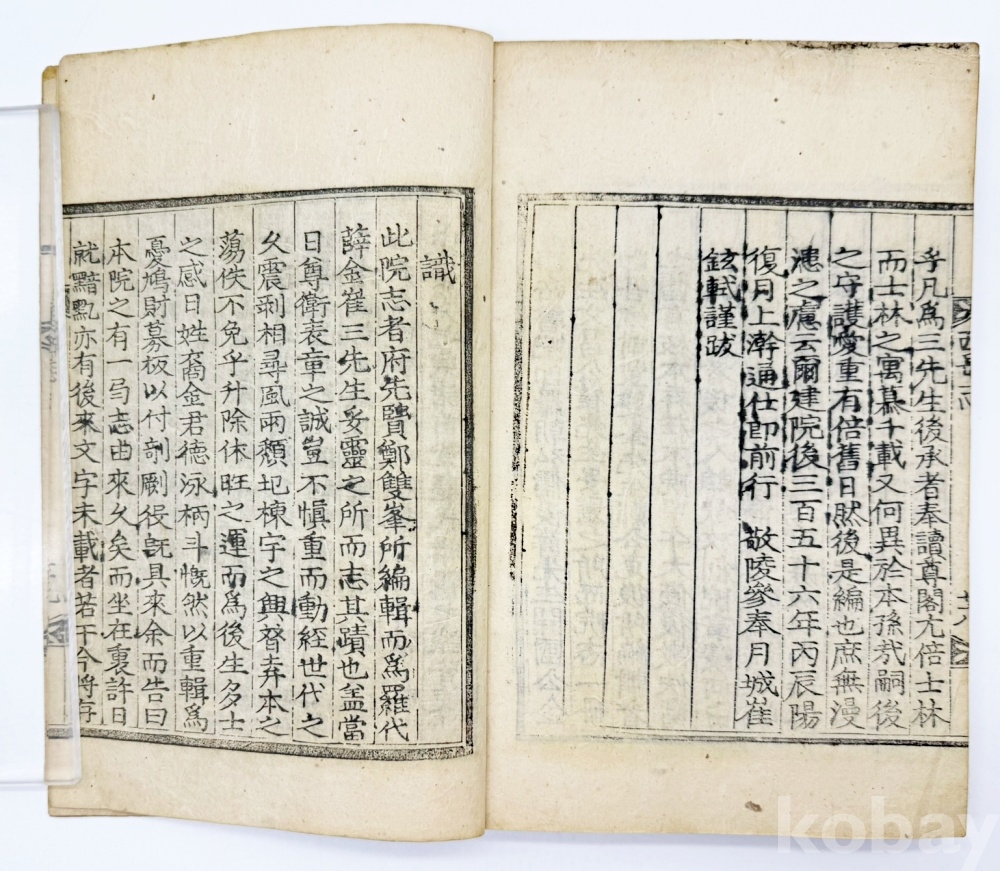 乎凡爲三先生後承者奉讀尊閣尤倍士林
而士林之寓慕千載又何異於本孫哉嗣後
之守護愛重有倍舊日然後是編也庶無漫
漶之慮云爾建院後三百五十六年丙辰陽
復月上澣通仕郎前行 敬陵參奉月城崔
鉉軾謹跋
識
此院志者府先賢鄭雙峯所編輯而爲羅代
薛金崔三先生妥靈之所而志其蹟也盖當
日尊衛表章之誠豈不愼重而動經世代之
久震剥相尋風雨頹圮棟宇之興替弆本之
蕩佚不免乎升除休旺之運而爲後生多士
之感日姓裔金君德泳柄斗慨然以重輯爲
憂鳩財募板以付剞劂役旣具來余而告曰
本院之有一局志曲來久矣而坐在裒許日
就黯點亦有後來文字未載者若干今將存
kobay